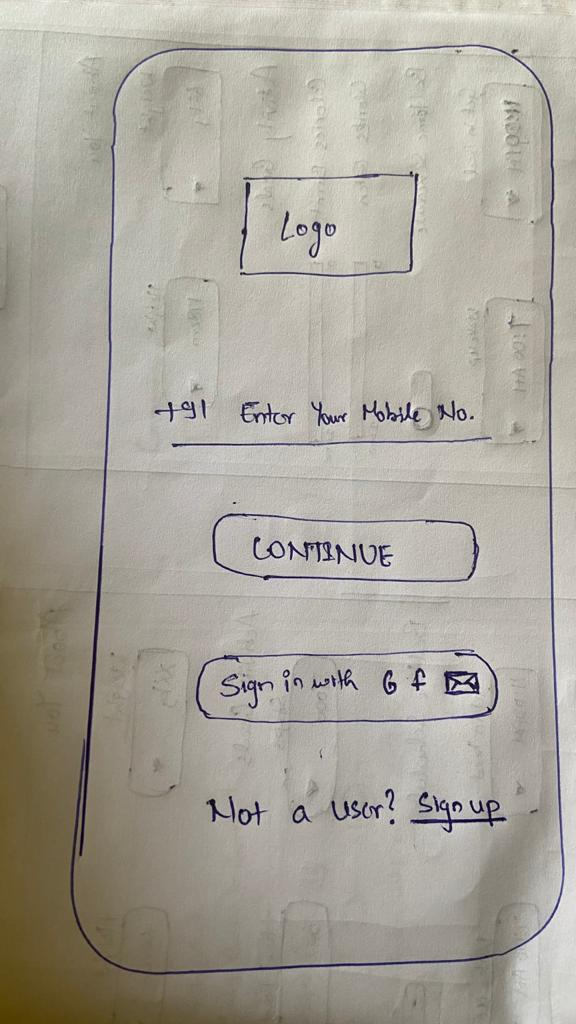 Logo
+91 Enter Your Mobile No.
CONTINUE
Sign in with G f
Not a user? Sign up